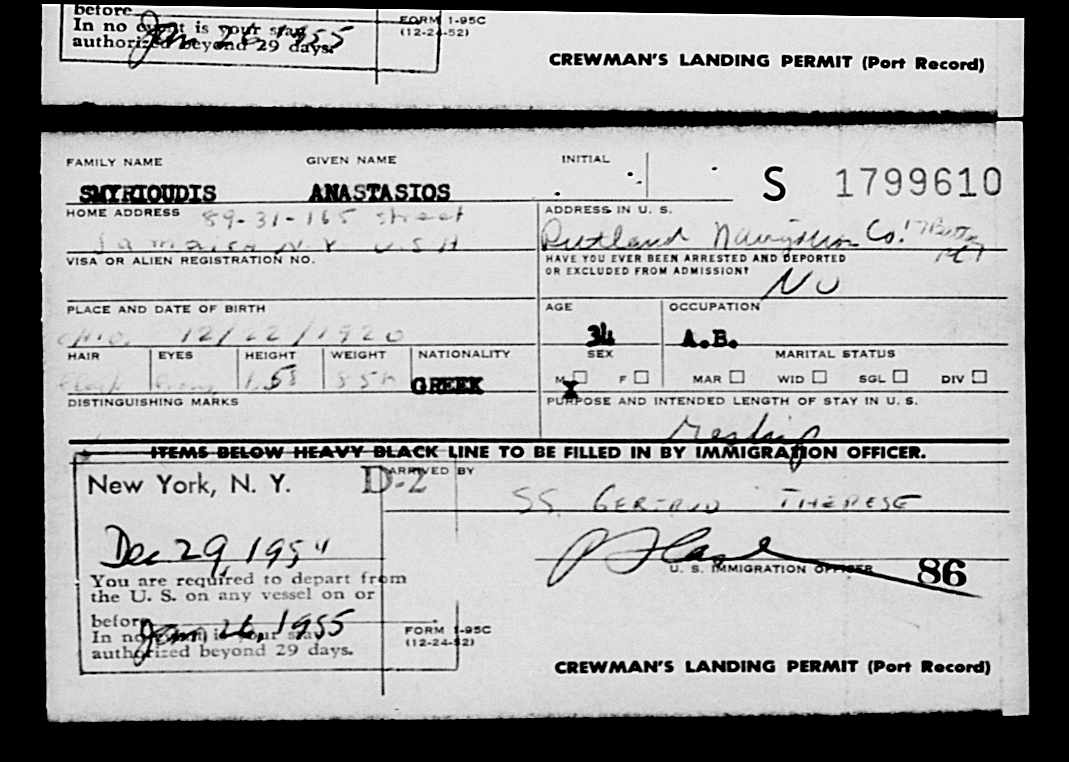 before
In no event is your stay
authorized beyond 29 days.
Jan 26, 1955
FORM I-95C
(12-24-52)
CREWMAN'S LANDING PERMIT (Port Record)
FAMILY NAME GIVEN NAME INITIAL
SMYRIOUDIS ANASTASIOS S 1799610
HOME ADDRESS 89-31-165 street
Jamaica N.Y U.S.A
ADDRESS IN U. S.
Rutland Navigation Co.
VISA OR ALIEN REGISTRATION NO.
HAVE YOU EVER BEEN ARRESTED AND DEPORTED
OR EXCLUDED FROM ADMISSION?
No
PLACE AND DATE OF BIRTH
12/22/1920
AGE OCCUPATION
34 A.B.
HAIR EYES HEIGHT WEIGHT NATIONALITY
1.58 GREEK
SEX MARITAL STATUS
M X F MAR WID SGL DIV
DISTINGUISHING MARKS
PURPOSE AND INTENDED LENGTH OF STAY IN U. S.
ITEMS BELOW HEAVY BLACK LINE TO BE FILLED IN BY IMMIGRATION OFFICER.
New York, N. Y. D-2
ARRIVED BY
SS. GERTRUD THERESE
Dec 29, 1954
You are required to depart from
the U. S. on any vessel on or
before Jan 26, 1955
In no event is your stay
authorized beyond 29 days.
U. S. IMMIGRATION OFFICER 86
FORM I-95C
(12-24-52)
CREWMAN'S LANDING PERMIT (Port Record)